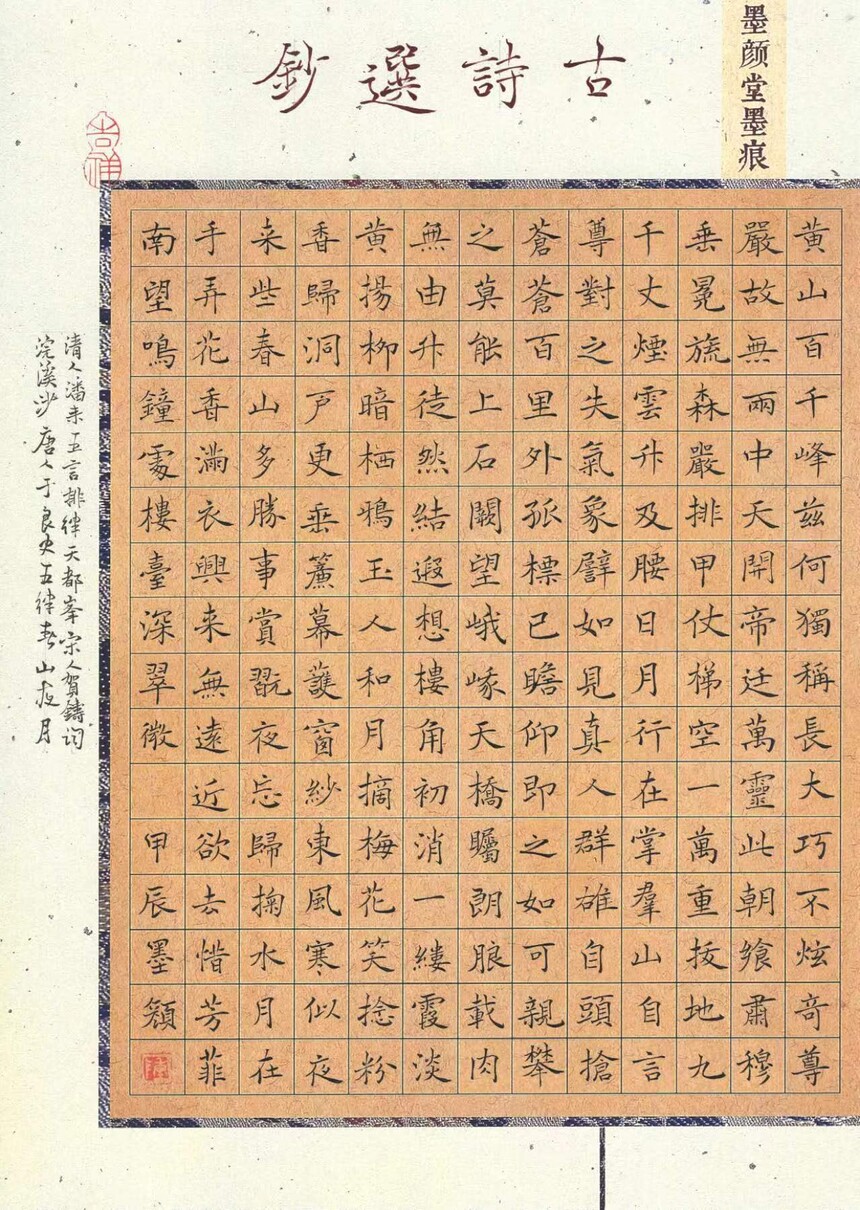 古詩選鈔
墨颜堂墨痕
吉祥
黄山百千峰兹何獨稱長大巧不炫竒尊
嚴故無兩中天開帝廷萬靈此朝飨肅穆
垂冕旒森嚴排甲仗梯空一萬重拔地九
千丈煙雲升及腰日月行在掌羣山自言
尊對之失氣象譬如見真人群雄自頭搶
蒼蒼百里外孤標已瞻仰即之如可親攀
之莫能上石闕望峨天橋矚朗朖載肉
無由升徒然結遐想樓角初消一縷霞淡
黄揚栁暗栖鴉玉人和月摘梅花笑捻粉
香歸洞戸更垂簾幕護窗紗東風寒似夜
来些春山多勝事賞翫夜忘歸掬水月在
手弄花香滿衣興来無遠近欲去惜芳菲
南望鳴鐘處樓臺深翠微 甲辰墨顏
清人潘耒五言排律天都峯宋人賀鑄词
浣溪沙唐人于良史五律春山夜月